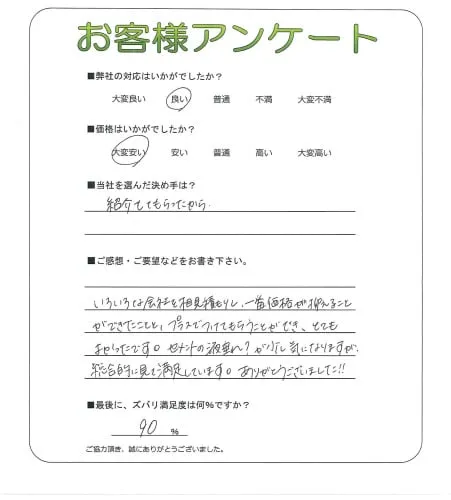 お客様アンケート
■弊社の対応はいかがでしたか？
大変良い 良い 普通 不満 大変不満
■価格はいかがでしたか？
大変安い 安い 普通 高い 大変高い
■当社を選んだ決め手は？
紹介してもらったから
■ご感想・ご要望などをお書き下さい。
いろいろな会社を相見積もりし、一番価格が抑えること
ができたことと、プラスでつけてもらうことができ、とても
よかったです。セメントの液垂れ？が少し気になりますが、
総合的に見て満足しています。ありがとうございました!!
■最後に、ズバリ満足度は何%ですか？
90 %
ご協力頂き、誠にありがとうございました。